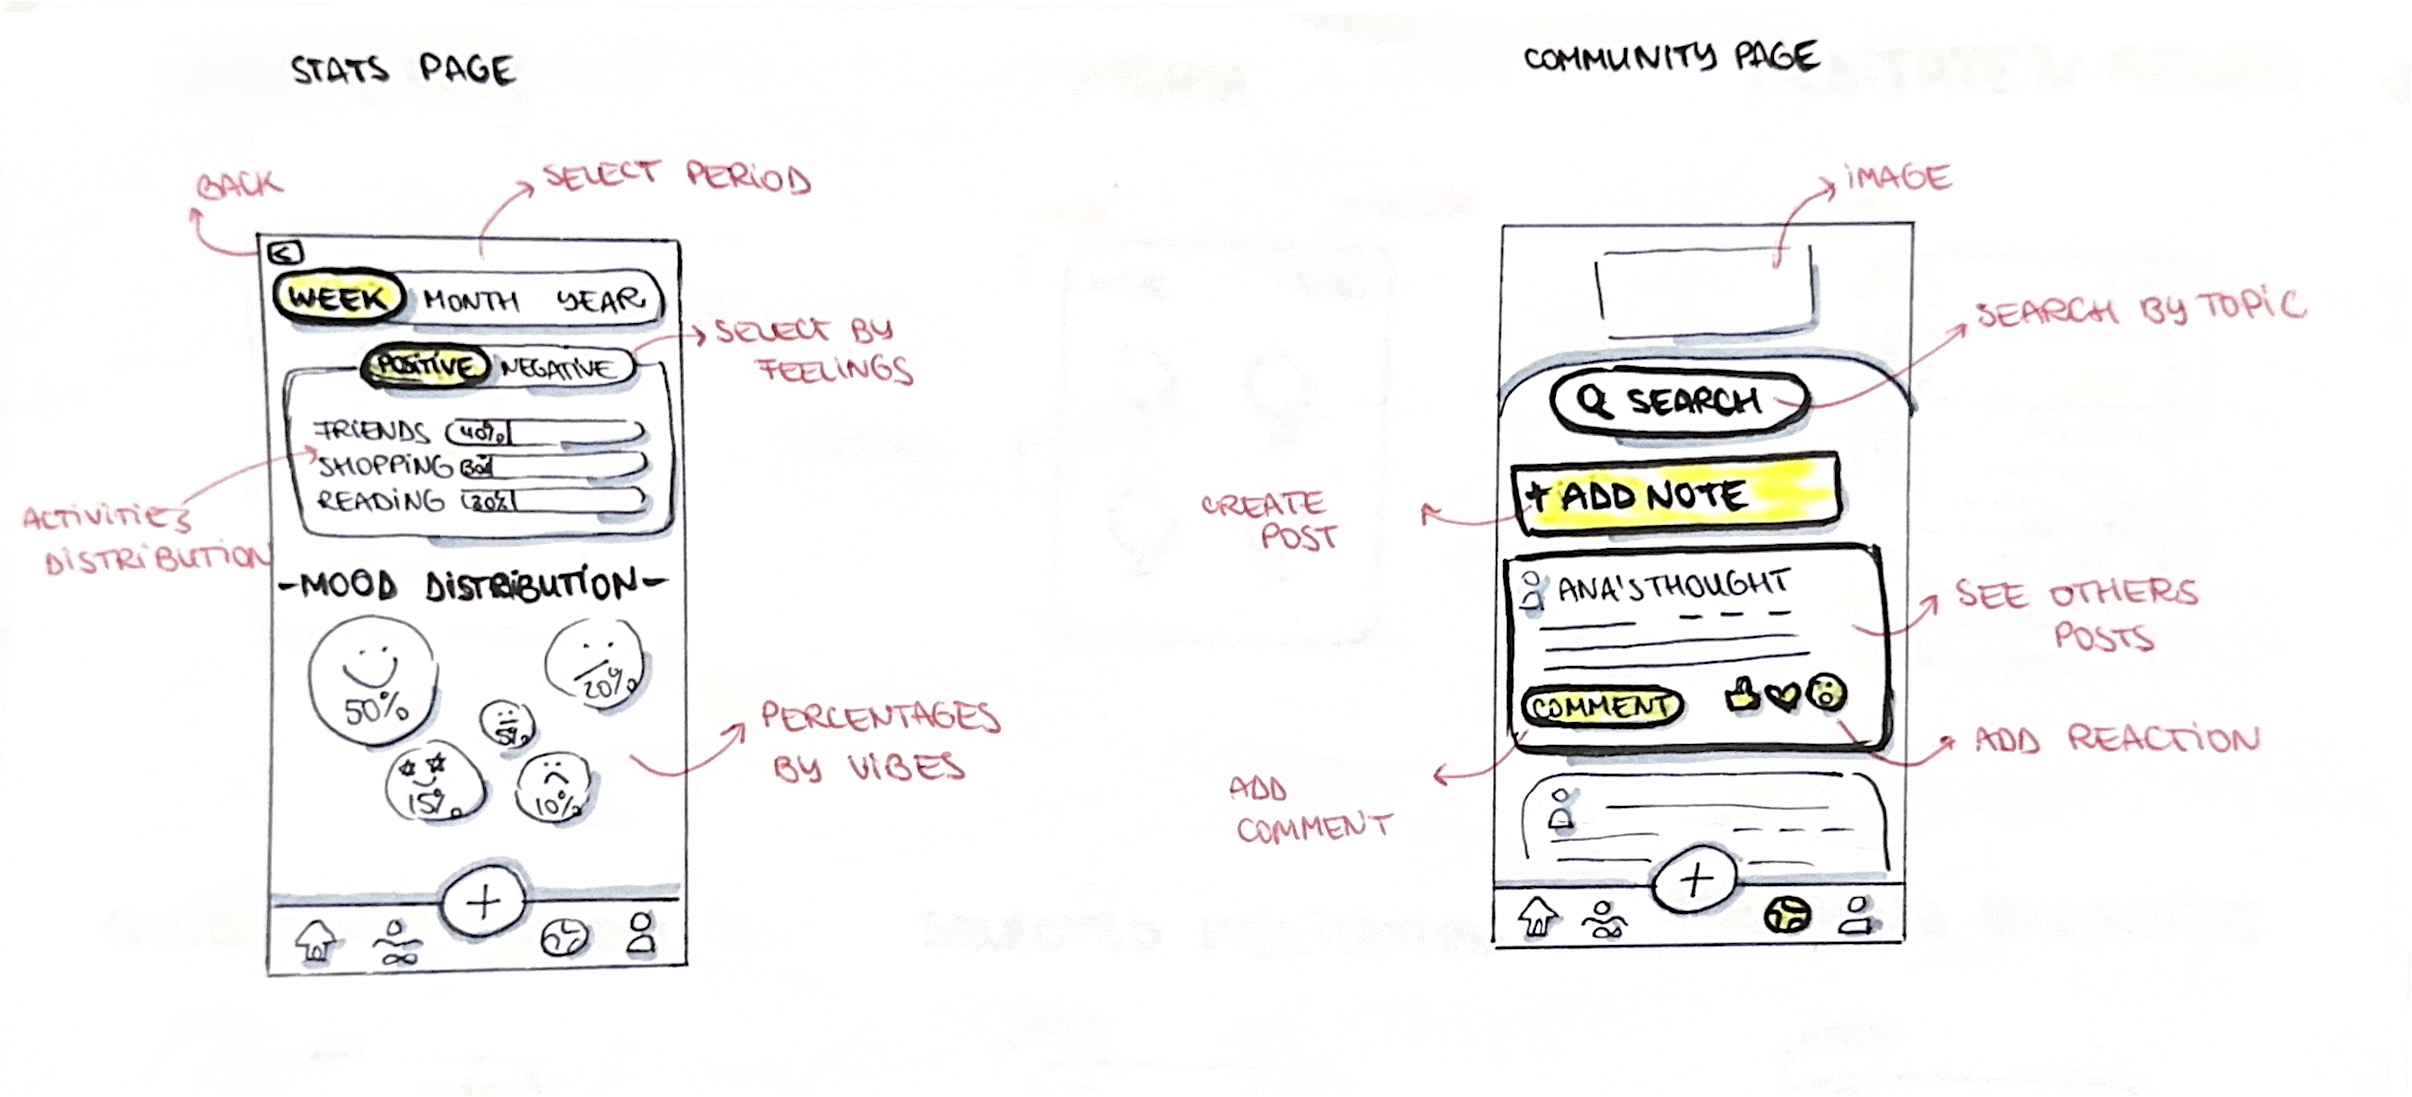 STATS PAGE
BACK
SELECT PERIOD
<
WEEK MONTH YEAR
SELECT BY
FEELINGS
POSITIVE NEGATIVE
FRIENDS 40%
SHOPPING
READING 30%
ACTIVITIES
DISTRIBUTION
-MOOD DISTRIBUTION-
50%
20%
5%
15%
10%
PERCENTAGES
BY VIBES
+
COMMUNITY PAGE
IMAGE
SEARCH BY TOPIC
SEARCH
+ ADD NOTE
CREATE
POST
ANA'S THOUGHT
SEE OTHERS
POSTS
COMMENT
ADD REACTION
ADD
COMMENT
+